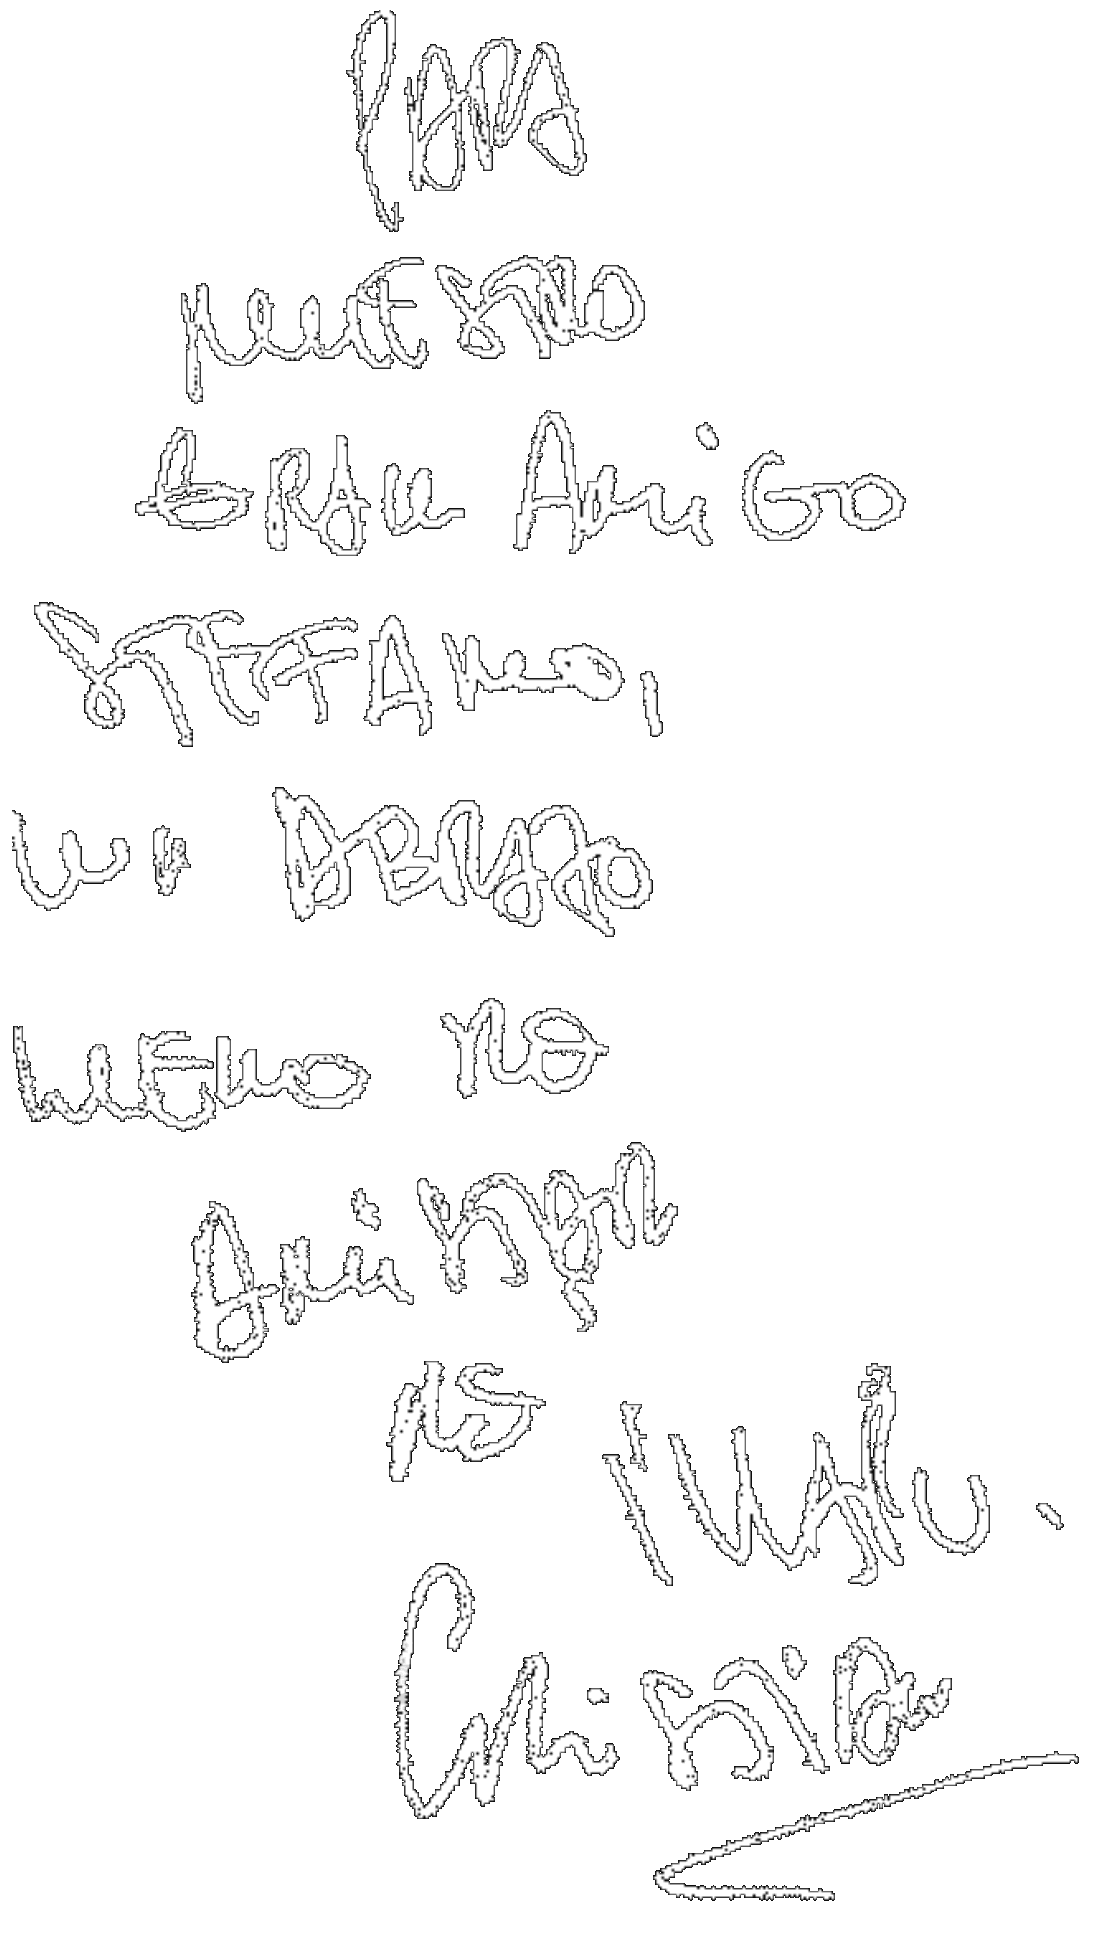 PARA
NUESTRO
GRAN AMiGO
STEFANO,
UN ABRAZO
LLENO DE
AMiSTAD
DE
CHRiSTiAN